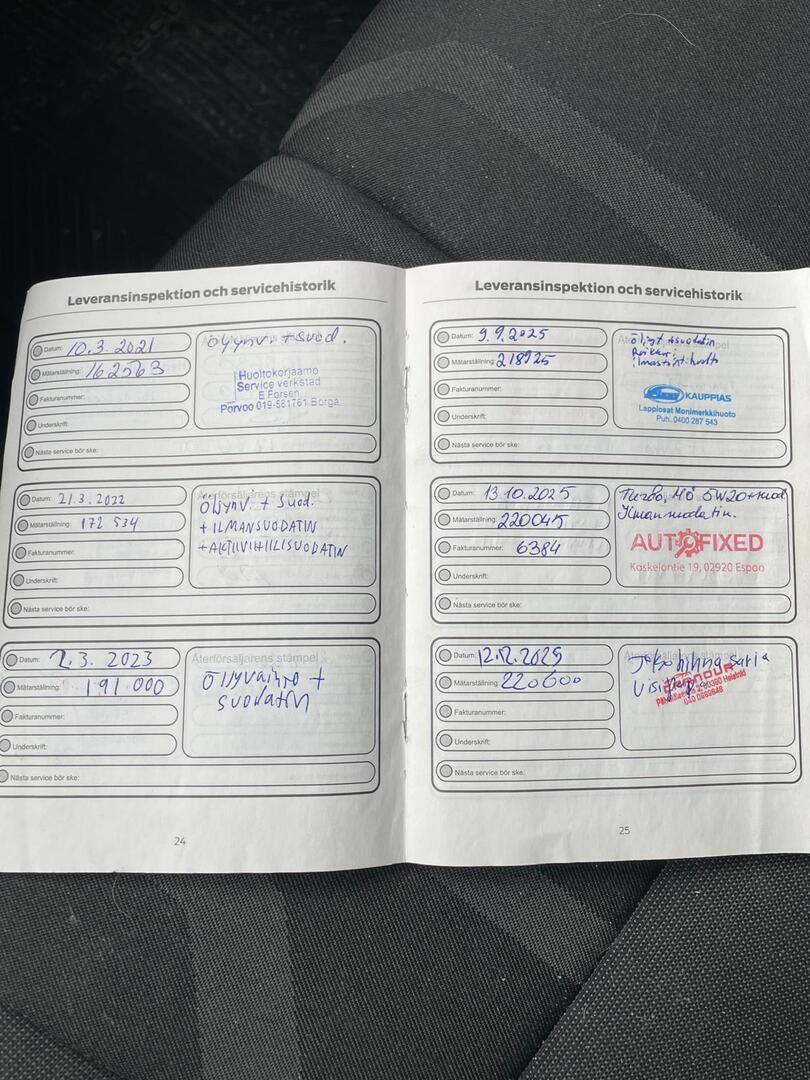 Leveransinspektion och servicehistorik
Datum: 10.3.2021
Mätarställning: 162563
Fakturanummer:
Underskrift:
Nästa service bör ske:
öljynv. + suod.
Huoltokorjaamo
Service verkstad
E Forsen
Porvoo 019-581761 Borgå
Datum: 21.3.2022
Mätarställning: 172 534
Fakturanummer:
Underskrift:
Nästa service bör ske:
Återförsäljarens stämpel
öljynv. + suod.
+ ILMANSUODATIN
+ AKTIIVIHIILISUODATIN
Datum: 2.3. 2023
Mätarställning: 191 000
Fakturanummer:
Underskrift:
Nästa service bör ske:
Återförsäljarens stämpel
öljyvaihto +
suodatin
24
Leveransinspektion och servicehistorik
Datum: 9.9.2025
Mätarställning: 218925
Fakturanummer:
Underskrift:
Nästa service bör ske:
öljyt + suodatin
ilmastointihuolto
KAUPPIAS
Lappiosat Monimerkkihuolto
Puh. 0400 287 543
Datum: 13 10.2025
Mätarställning: 220045
Fakturanummer: 6384
Underskrift:
Nästa service bör ske:
Turbo, Mö 5W20+suod
Ilmansuodatin.
AUTOFIXED
Koskelontie 19, 02920 Espoo
Datum: 12.12.2025
Mätarställning: 220600
Fakturanummer:
Underskrift:
Nästa service bör ske:
Jakohihna sarja
Helsinki
25